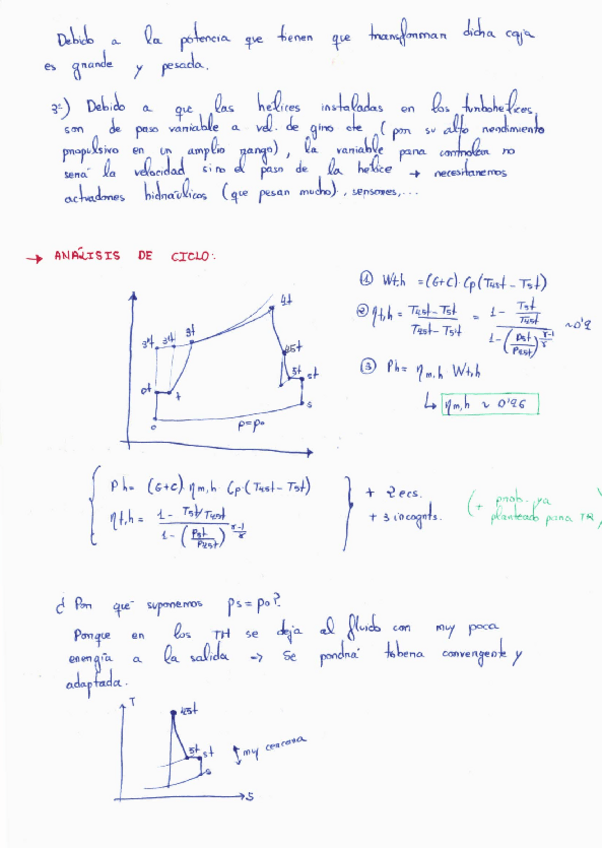 Debido a la potencia que tienen que transformar dicha caja
es grande y pesada.
3º) Debido a que las helices instaladas en los turbohelices
son de paso variable a vel. de giro cte (por su alto rendimiento
propulsivo en un amplio rango), la variable para controlar no
será la velocidad sino el paso de la helice → necesitaremos
actuadores hidráulicos (que pesan mucho), sensores,...
→ ANÁLISIS DE CICLO:
① Wt,h = (G+C)·Cp(T45t - T5t)
② ηt,h = (T45t - T5t)/(T45t - T5't) = (1 - T5t/T45t)/(1 - (P5t/P45t)^((γ-1)/γ)) ~0'9
③ Ph = ηm,h Wt,h
↳ ηm,h ~ 0'96
4t
3t
45t
5t
st
0t
s
0
p=p0
Ph = (G+C)·ηm,h·Cp(T45t - T5t)
ηt,h = (1 - T5t/T45t)/(1 - (P5t/P45t)^((γ-1)/γ))
+ 2 ecs.
+ 3 incognts.
(+ prob. ya
planteado para TR)
¿Por qué suponemos ps = p0?
Porque en los TH se deja al fluido con muy poca
energía a la salida → Se pondrá tobera convergente y
adaptada.
T
45t
5t st
s
muy cercana
S